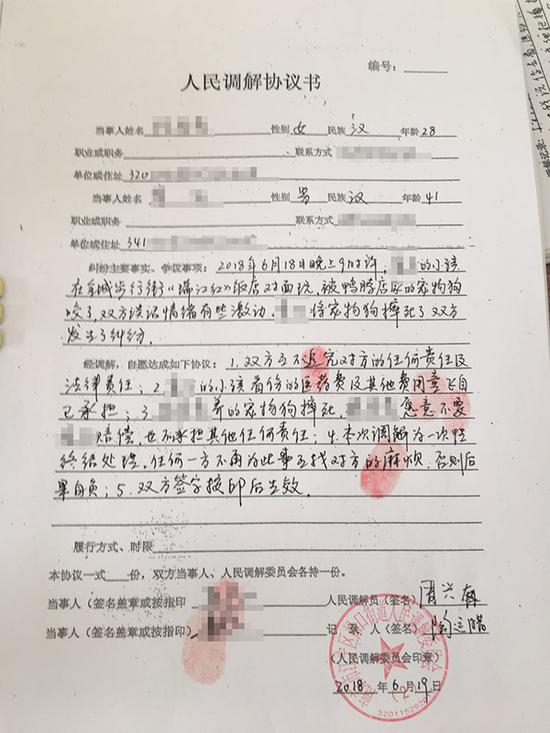 编号：
人民调解协议书
当事人姓名 性别 女 民族 汉 年龄 28
职业或职务 联系方式
单位或住址 320
当事人姓名 性别 男 民族 汉 年龄 41
职业或职务 联系方式
单位或住址 341
纠纷主要事实、争议事项：2018年6月18日晚上9时许， 的小孩
在金城步行街《瑞江红》饭店对面玩，被鸭脖店家的宠物狗
咬了，双方谈话情绪有些激动， 将宠物狗摔死了双方
发生了纠纷。
经调解，自愿达成如下协议：1.双方互不追究对方的任何责任及
法律责任；2. 的小孩看伤的医药费及其他费用 自
己承担；3. 养的宠物狗摔死， 愿意不要
赔偿，也不承担其他任何责任；4.本次调解为一次性
终结处理，任何一方不再为此事去找对方的麻烦，否则后
果自负；5.双方签字按印后生效。
履行方式、时限
本协议一式 份，双方当事人、人民调解委员会各持一份。
当事人（签名盖章或按指印 人民调解员（签名）
当事人（签名盖章或按指印） 记录人（签名）
（人民调解委员会印章）
2018 年 6 月 19 日